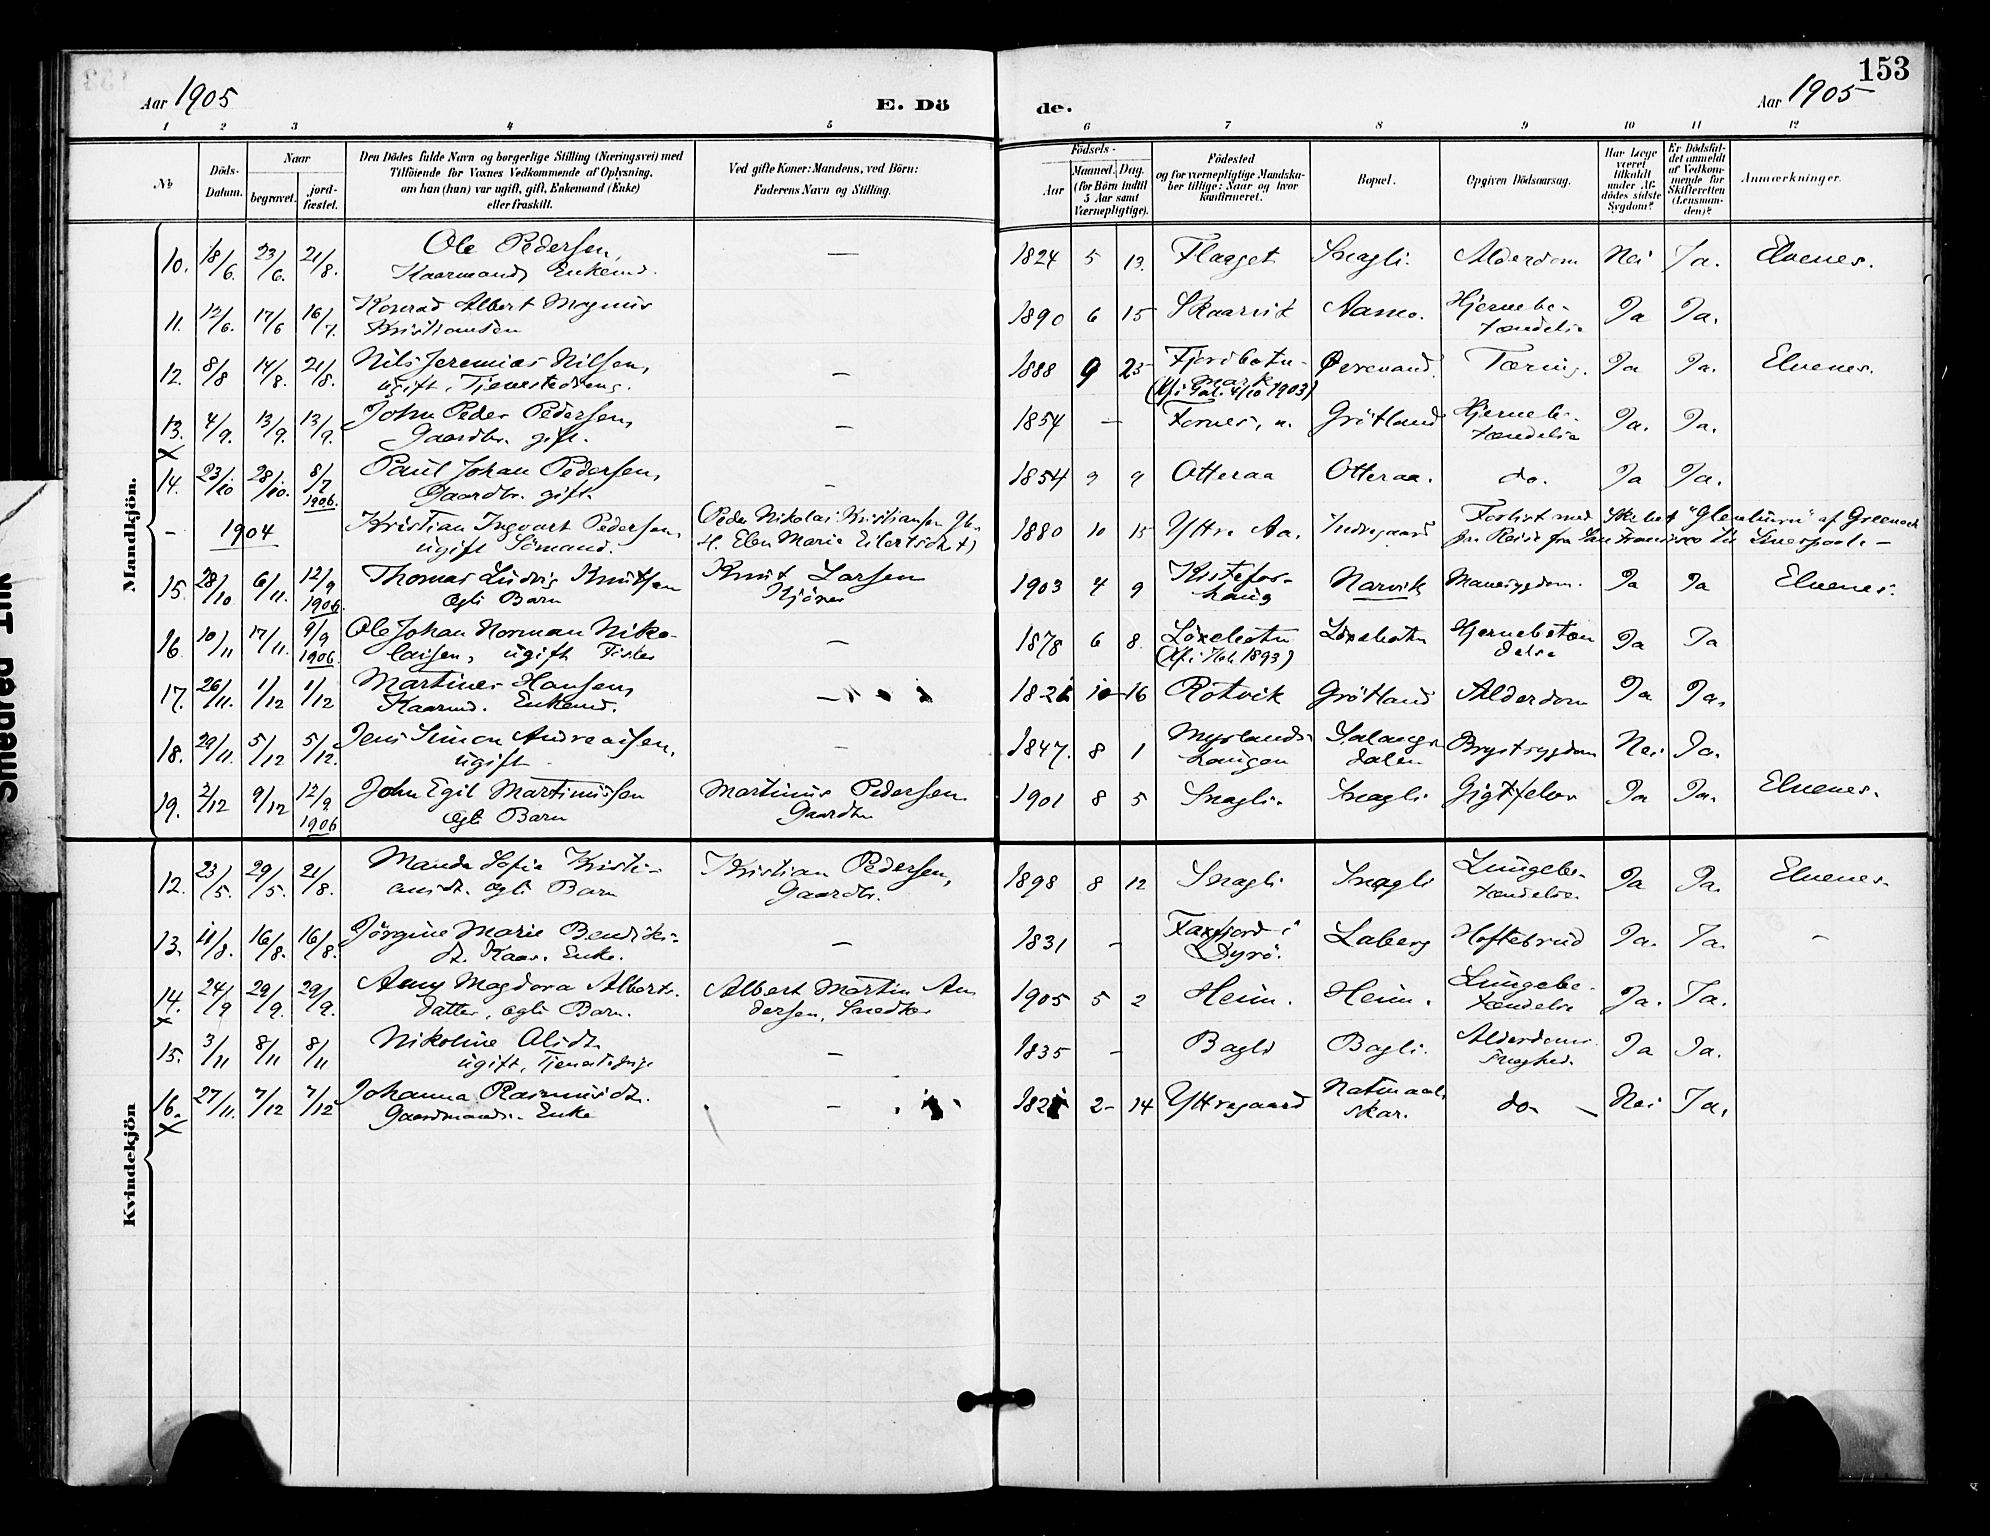 153
Aar 1905 E. Dö de. Aar 1905
1 2 3 4 5 6 7 8 9 10 11 12
№
Döds-Datum.
Naar
begravet.
jord-fæstet.
Den Dödes fulde Navn og borgerlige Stilling (Næringsvei) med
Tilföiende for Voxnes Vedkommende af Oplysning,
om han (hun) var ugift, gift, Enkemand (Enke)
eller fraskilt.
Ved gifte Koner: Mandens, ved Börn:
Faderens Navn og Stilling.
Födsels-
Aar
Maaned. Dag.
(for Börn indtil
5 Aar samt
Værnepligtige).
Födested
og for værnepligtige Mandska-
ber tillige: Naar og hvor
konfirmeret.
Bopæl.
Opgiven Dödsaarsag.
Har Læge
været
tilkaldt
under Af-
dödes sidste
Sygdom?
Er Dödsfal-
det anmeldt
af Vedkom-
mende for
Skifteretten
(Lensman-
den)?
Anmærkninger.
Mandkjön.
10. 18/6. 23/6. 21/8. Ole Pedersen, — 1824 5 13. Flaaget Snagli. Alderdom Nei Ja. Elvenes.
Kaarmand, Enkemd.
11. 12/6. 17/6 16/7. Konrad Albert Magnus 1890 6 15 Skaarvik Aamo. Hjernebe- Ja Ja.
Kristiansen tændelse
12. 8/8 14/8. 21/8. Nils Jeremias Nilsen, — 1888 9 25 Fjordbotn- Örevand. Tæring. Ja Ja. Elvenes.
ugift, Tjenestedreng. mark
4/10 1903)
13. 4/9. 13/9. 13/9. John Peder Pedersen, — 1854 — Fornes, Grötland Hjernebe- Ja. Ja.
Gaardbr. gift. tændelse
x
14. 23/10 28/10. 8/7 1906. Paul Johan Pedersen, — 1854 9 9 Otteraa Otteraa. do. Ja Ja.
Gaardbr. gift.
— 1904 Kristian Ingvart Pedersen, Peder Nikolai Kristiansen 1880 10 15 Yttre Aa. Indregaard Forlist med Skibet "Glenburn" af Greenock
ugift Sömand. H. Elen Marie Eilertsdt. paa Reise fra San Francisco til Liverpool. —
15. 28/10 6/11. 12/9 1906. Thomas Ludvig Knutsen Knut Larsen 1903 4 9 Kistefos- Narvik Mavesygdom. Ja Ja Elvenes.
ægte Barn haug
16. 10/11 17/11. 9/9 1906. Ole Johan Norman Niko- — 1878 6 8. Löxebotn Löxebotn Hjernebetæn Ja Ja
laisen, ugift Fisker 1893) delse
17. 26/11. 1/12 1/12 Martines Hansen, — 10 16 Rotvik Grötland Alderdom Ja Ja.
Kaarmd. Enkemd.
18. 29/11. 5/12 5/12. Jens Simon Andreassen, — 1847. 8 1 Myrlands- Salangs- Brystsygdom Nei Ja.
ugift haugen dalen
19. 2/12 9/12 12/9 1906 John Egil Martinussen Martinus Pedersen 1901 8 5 Snagli. Snagli Gigtfeber Ja Ja. Elvenes.
ægte Barn Gaardbr.
Kvindekjön
12. 23/5. 29/5. 21/8. Manda Sofie Kristi- Kristian Pedersen, 1898 8 12 Snagli Snagli Lungebe- Ja Ja. Elvenes.
ansdt. ægte Barn Gaardbr. tændelse
13. 11/8. 16/8. 16/8. Jörgine Marie Bendiks- — 1831 — Faxfjord i Laberg Hoftebrud Ja. Ja. —
dt. Kaar. Enke. Dyrö.
14. 24/9 29/9. 29/9. Amy Magdora Alberts- Albert Martin An 1905 5 2 Heim. Heim. Lungebe- Ja. Ja.
datter, ægte Barn. dersen, Snedker tændelse
x
15. 3/11 8/11 8/11 Nikoline Olsdt. — 1835 — Bagli Bagli. Alderdoms- Ja Ja.
ugift, svaghed.
16. 27/11. 7/12 7/12 Johanna Rasmusdt. — 2 14 Yttregaard do — Nei Ja.
x Gaardmands Enke skar.